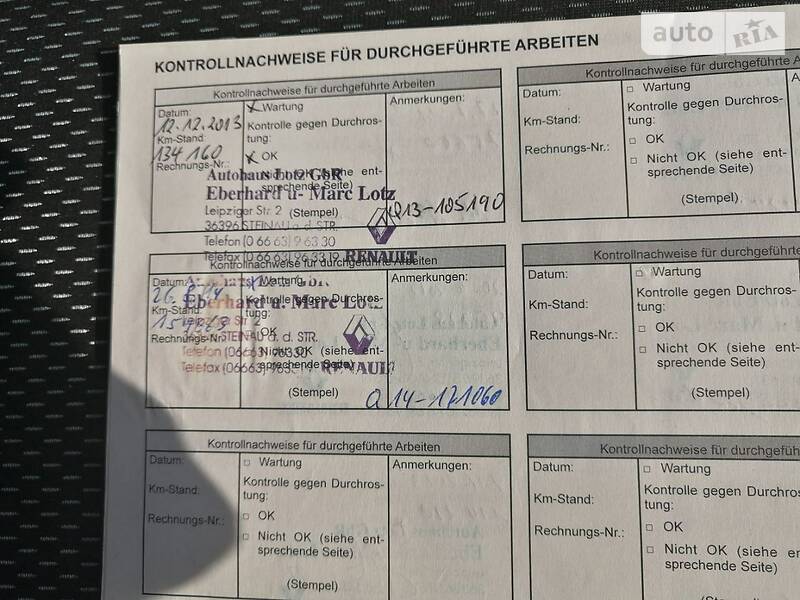 auto RIA
KONTROLLNACHWEISE FÜR DURCHGEFÜHRTE ARBEITEN
Kontrollnachweise für durchgeführte Arbeiten
Datum:
12.12.2013
Km-Stand:
134 160
Rechnungs-Nr.:
Wartung
Kontrolle gegen Durchros-
tung:
OK
Nicht OK (siehe ent-
sprechende Seite)
(Stempel)
Anmerkungen:
Autohaus Lotz GbR
Eberhard u. Marc Lotz
Leipziger Str. 2
36396 STEINAU a. d. STR.
Telefon (0 66 63) 9 63 30
Telefax (0 66 63) 96 33 19
RENAULT
13-105190
Kontrollnachweise für durchgeführte
Datum:
Km-Stand:
Rechnungs-Nr.:
Wartung
Kontrolle gegen Durchros-
tung:
OK
Nicht OK (siehe ent-
sprechende Seite)
(Stempel)
Kontrollnachweise für durchgeführte Arbeiten
Datum:
Km-Stand:
Rechnungs-Nr.:
Wartung
Kontrolle gegen Durchros-
tung:
OK
Nicht OK (siehe ent-
sprechende Seite)
(Stempel)
Anmerkungen:
Eberhard u. Marc Lotz
STEINAU a. d. STR.
Telefon (06663)
Telefax (06663)
RENAULT
14-171060
Kontrollnachweise für durchgeführte
Datum:
Km-Stand:
Rechnungs-Nr.:
Wartung
Kontrolle gegen Durchros-
tung:
OK
Nicht OK (siehe ent-
sprechende Seite)
(Stempel)
Kontrollnachweise für durchgeführte Arbeiten
Datum:
Km-Stand:
Rechnungs-Nr.:
Wartung
Kontrolle gegen Durchros-
tung:
OK
Nicht OK (siehe ent-
sprechende Seite)
(Stempel)
Anmerkungen:
Kontrollnachweise für durchgefüh
Datum:
Km-Stand:
Rechnungs-Nr.:
Wartung
Kontrolle gegen Durchros-
tung:
OK
Nicht OK (siehe en
sprechende Seite)